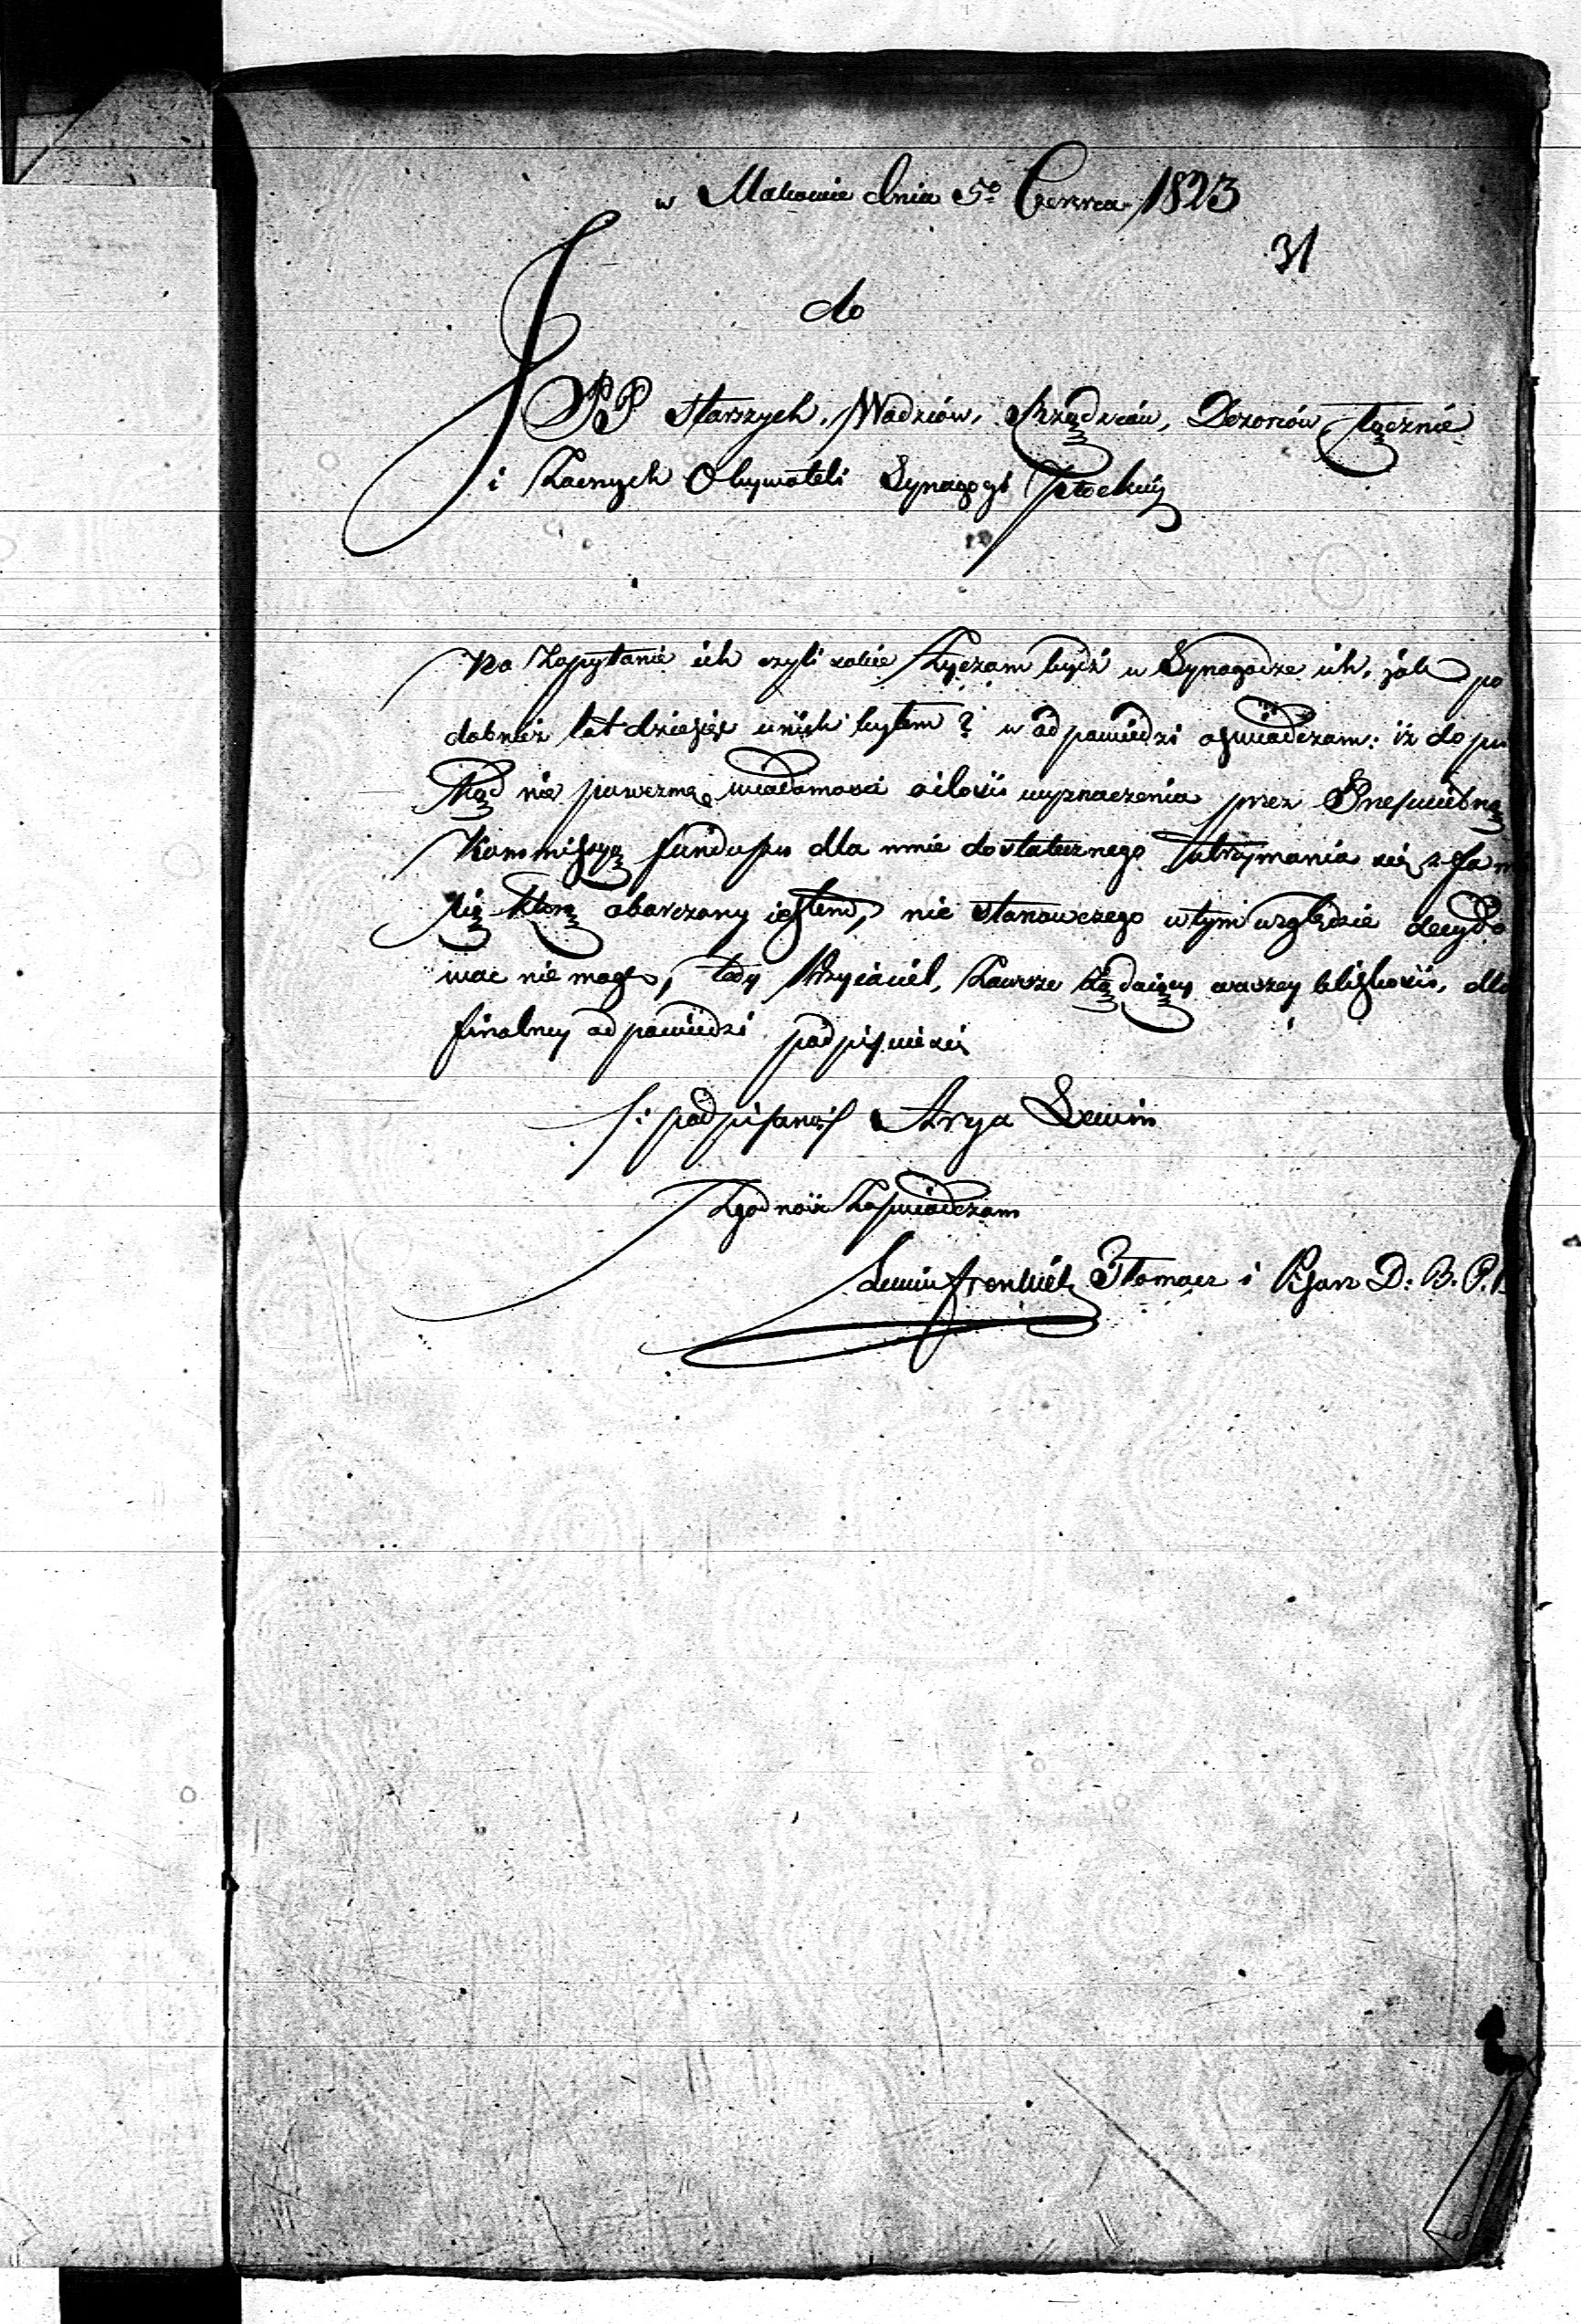 w Makowie dnia 5º Czerwca 1823
31
do
JPP Starszych, Wodziów, Rządzców, Dozorców, łącznie
i Zacnych Obywateli Synagogi Płockiey
Na Zapytanie ich czyli sobie Życzam bydź w Synagodze ich, jak po
dobnież lat dziesięć unich byłem? w odpowiedzi oswiadczam: iż do pu
kąd nie powezmę wiadomości oilości wyznaczenia przez Prześwietną
Kommissyą funduszu dla mnie dostatecznego utrzymania się z fam
lią którą obarczony iestem, nic stanowczego wtym względzie decydo
wac nie mogę, tedy Przyiaciel, Zawsze Żądaiący waszey bliskości, dla
finalney odpowiedzi podpisuie się
/: podpisano:/ Arya Lewin
Zgodność Zaswiadczam
Lewin Frenkiel Tłomacz i Pisarz D: B. P.